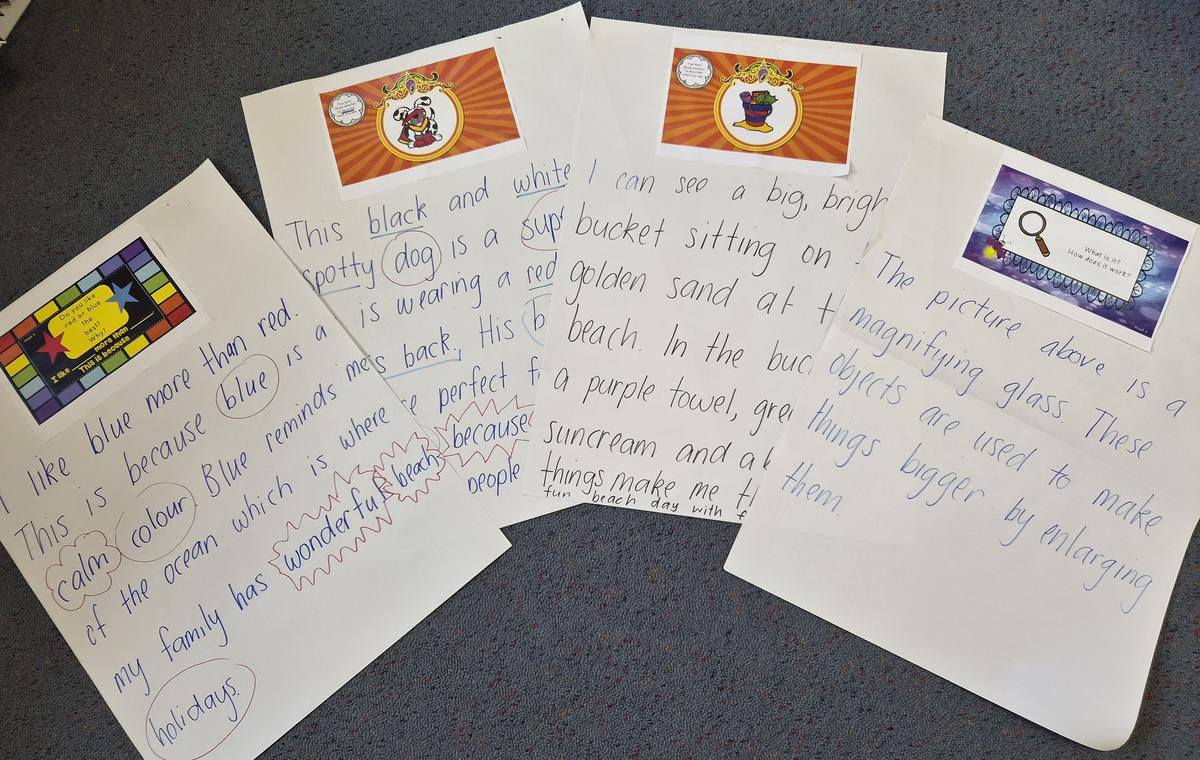 Do you like
red or blue
the
best?
Why?
I like ___ more than
This is because
I like blue more than red.
This is because blue is a
calm colour. Blue reminds me
of the ocean which is where
my family has wonderful beach
holidays.
This black and white
spotty dog is a
is wearing a red
back. His
perfect
because
people
I can see a big,
bucket sitting on
golden sand at
beach. In the
a purple towel,
suncream and
things make me
fun beach day with
What is it?
How does it work?
The picture above is a
magnifying glass. These
objects are used to make
things bigger by enlarging
them.